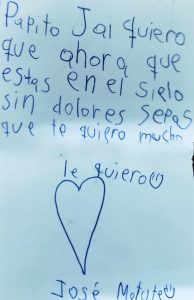 Papito Jai quiero
que ahora que
estas en el sielo
sin dolores sepas
que te quiero mucho
le quiero
José